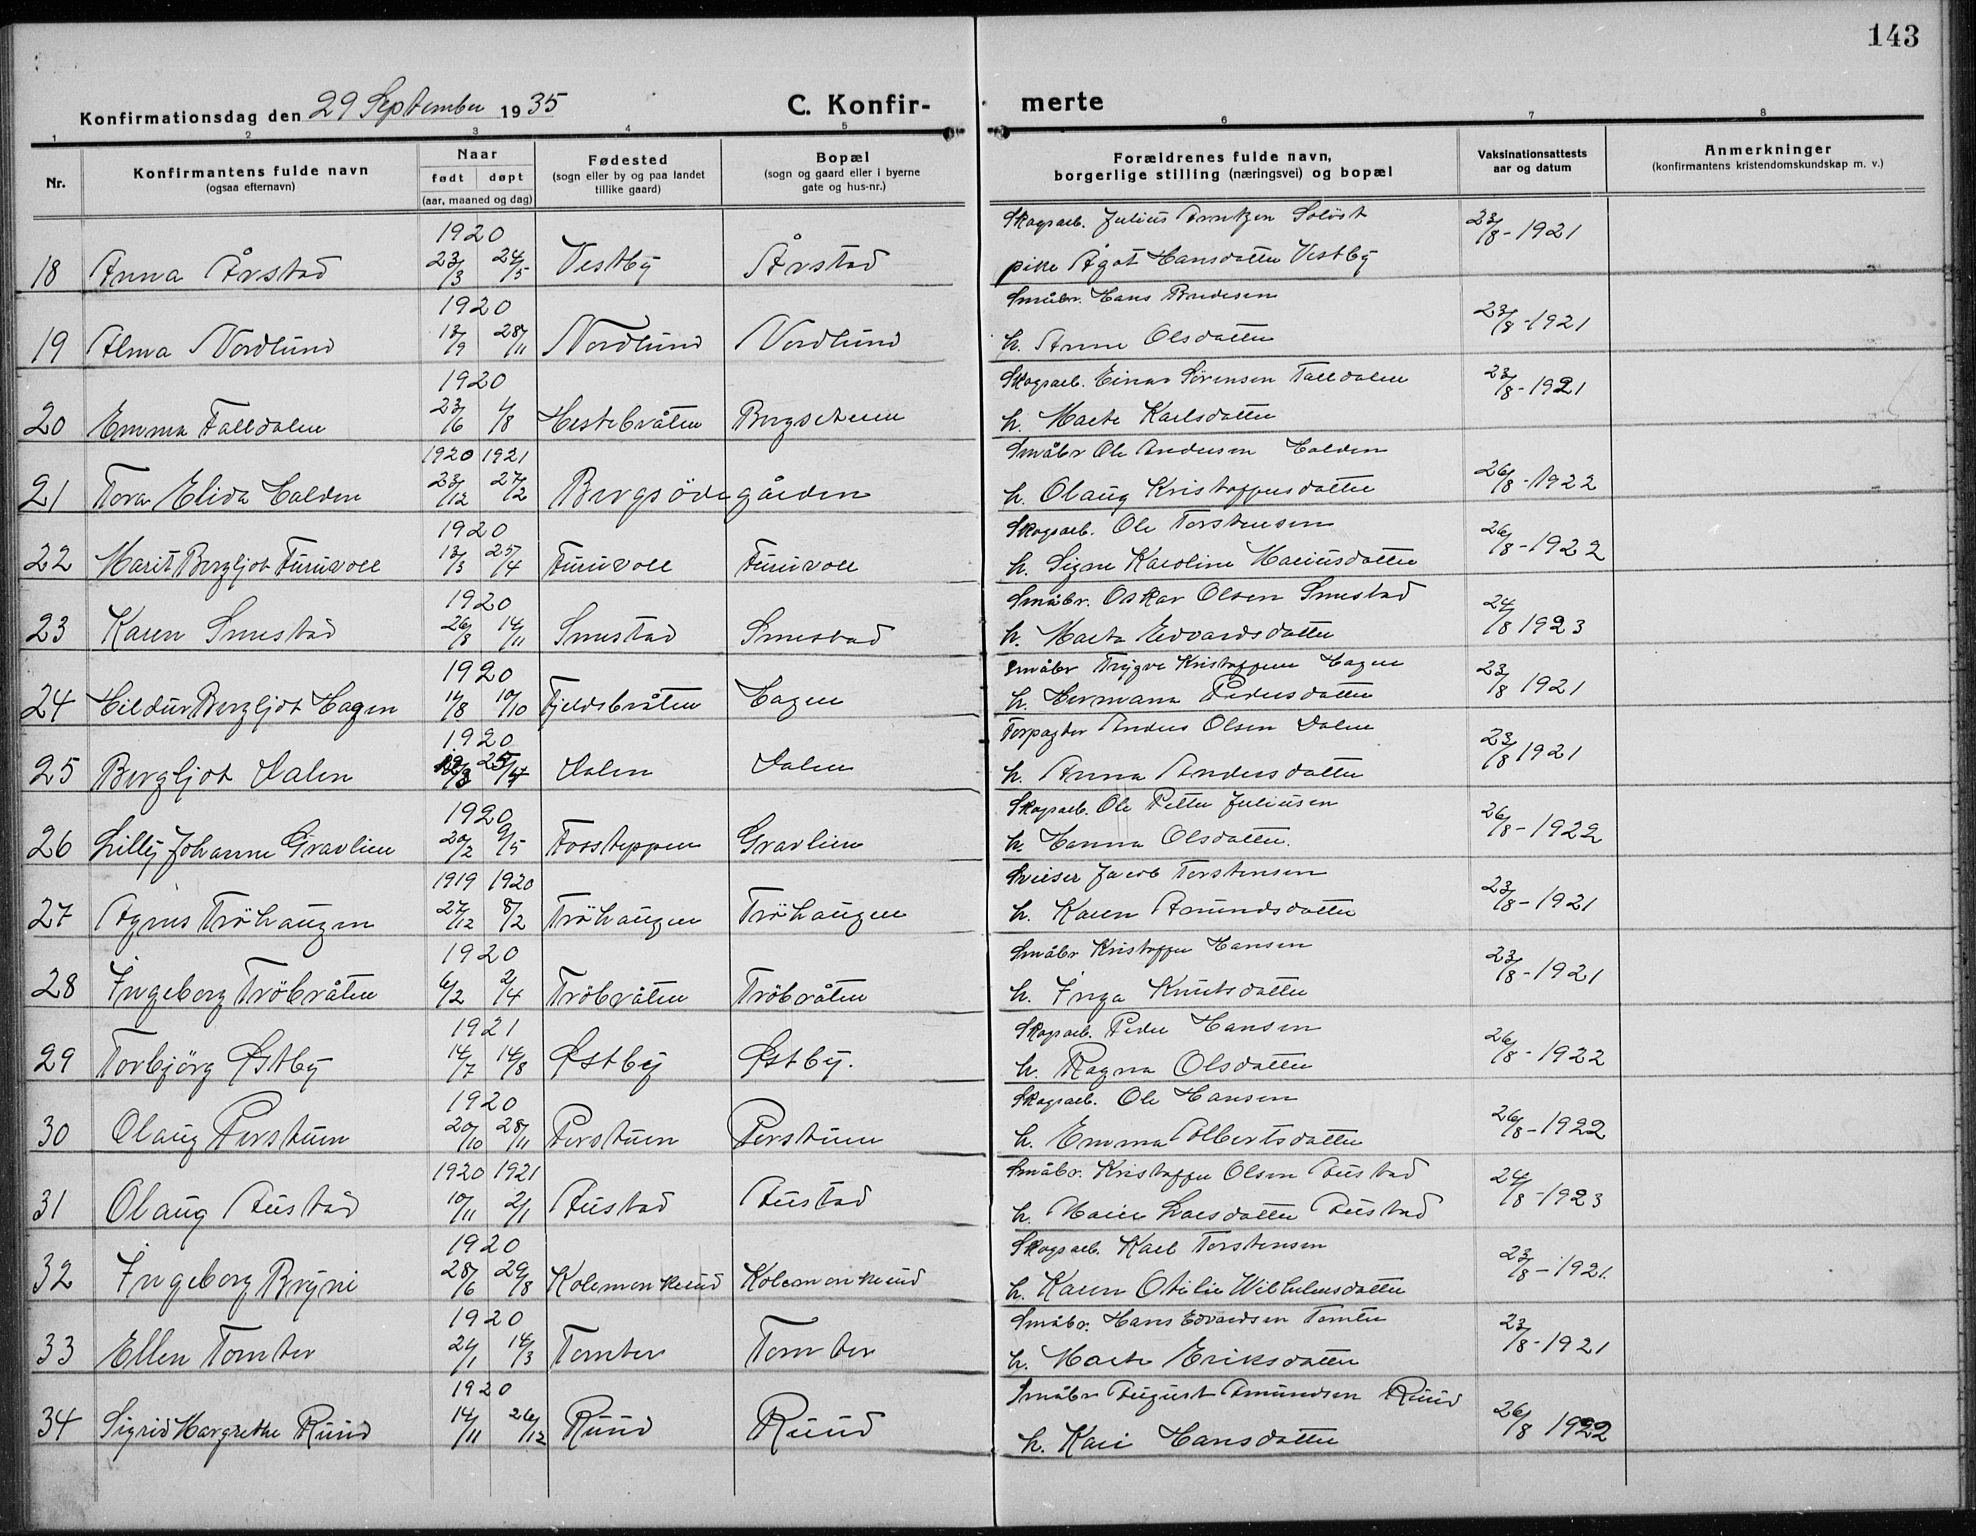 143
Konfirmationsdag den 29 September 1935
C. Konfirmerte
1 2 3 4 5 6 7 8
Nr.
Konfirmantens fulde navn
(ogsaa efternavn)
Naar
født døpt
(aar, maaned og dag)
Fødested
(sogn eller by og paa landet
tillike gaard)
Bopæl
(sogn og gaard eller i byerne
gate og hus-nr.)
Forældrenes fulde navn,
borgerlige stilling (næringsvei) og bopæl
Vaksinationsattests
aar og datum
Anmerkninger
(konfirmantens kristendomskundskap m. v.)
1920 Skogsarb. Julius Arntzen Soløst
18 Anna Årstad 23/3 24/5 Vestby Årstad pike Ågot Hansdatter Vestby 23/8-1921
1920 Småbr. Hans Bredesen
19 Alma Nordlund 13/9 28/11 Nordlund Nordlund h. Anne Olsdatter 23/8-1921
1920 Skogsarb. Einar Sørensen Talldalen
20 Emma Talldalen 23/6 1/8 Hestebråten Bergseteren h. Marte Karlsdatter 23/8-1921
1920 1921 Småbr Ole Andersen Holden
21 Tora Elida Holden 23/12 27/2 Bergsødegården h. Olaug Kristoffersdatter 26/8-1922
1920 Skogsarb. Ole Torstensen
22 Marit Bergljot Furuvoll 13/3 25/4 Furuvoll Furuvoll h. Signe Karoline Mariusdatter 26/8-1922
1920 Småbr. Oskar Olsen Smestad
23 Karen Smestad 26/8 14/11 Smestad Smestad h. Marta Edvardsdatter 24/8 1923
1920 Småbr Trygve Kristoffersen Hagen
24 Hildur Bergljot Hagen 11/8 10/10 Fjeldsbråten Hagen h. Hermana Pedersdatter 23/8 1921
1920 Forpagter Anders Olsen Dalen
25 Bergljot Dalen 25/4 Dalen Dalen h. Anna Andersdatter 23/8 1921
1920 Skogsarb. Ole Petter Juliussen
26 Lilly Johanne Gravlien 20/2 9/5 Fossteppen Gravlien h. Hanna Olsdatter. 26/8-1922
1919 1920 Sveiser Jacob Torstensen
27 Agnes Trøhaugen 27/12 8/2 Trøhaugen Trøhaugen h. Karen Amundsdatter 23/8-1921
1920 Småbr Kristoffer Hansen
28 Ingeborg Trøbråten 6/2 2/4 Trøbråten Trøbråten h. Inga Knutsdatter 23/8-1921
1921 Skogsarb. Peder Hansen
29 Torbjørg Østby 14/7 14/8 Østby Østby. h. Ragna Olsdatter 26/8-1922
1920 Skogsarb. Ole Hansen
30 Olaug Perstuen 20/10 28/11 Perstuen Perstuen h. Emma Albertsdatter 26/8-1922
1920 1921 Småbr. Kristoffer Olsen Austad
31 Olaug Austad 10/11 2/1 Austad Austad h. Marie Larsdatter Austad 24/8-1923
1920 Skogsarb. Karl Torstensen
32 Ingeborg Bryni 28/6 29/8 Kolemonkerud Kolemonkerud h. Karen Otilie Wilhelmsdatter 23/8-1921.
1920 Småbr. Hans Edvardsen Tomter
33 Ellen Tomter 24/1 14/3 Tomter Tomter h. Marte Eriksdatter 23/8-1921
1920 Småbr August Amundsen Ruud
34 Sigrid Margrethe Ruud 14/11 26/12 Ruud Ruud h. Kari Hansdatter 26/8 1922